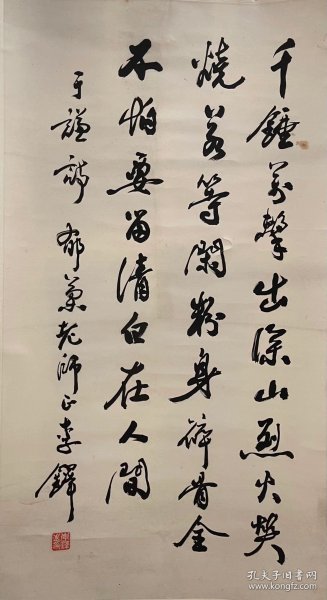 千錘万擊出深山烈火焚
燒若等閑粉身碎骨全
不怕要留清白在人間
于謙詩 郁老師正 李鐸
孔夫子旧书网